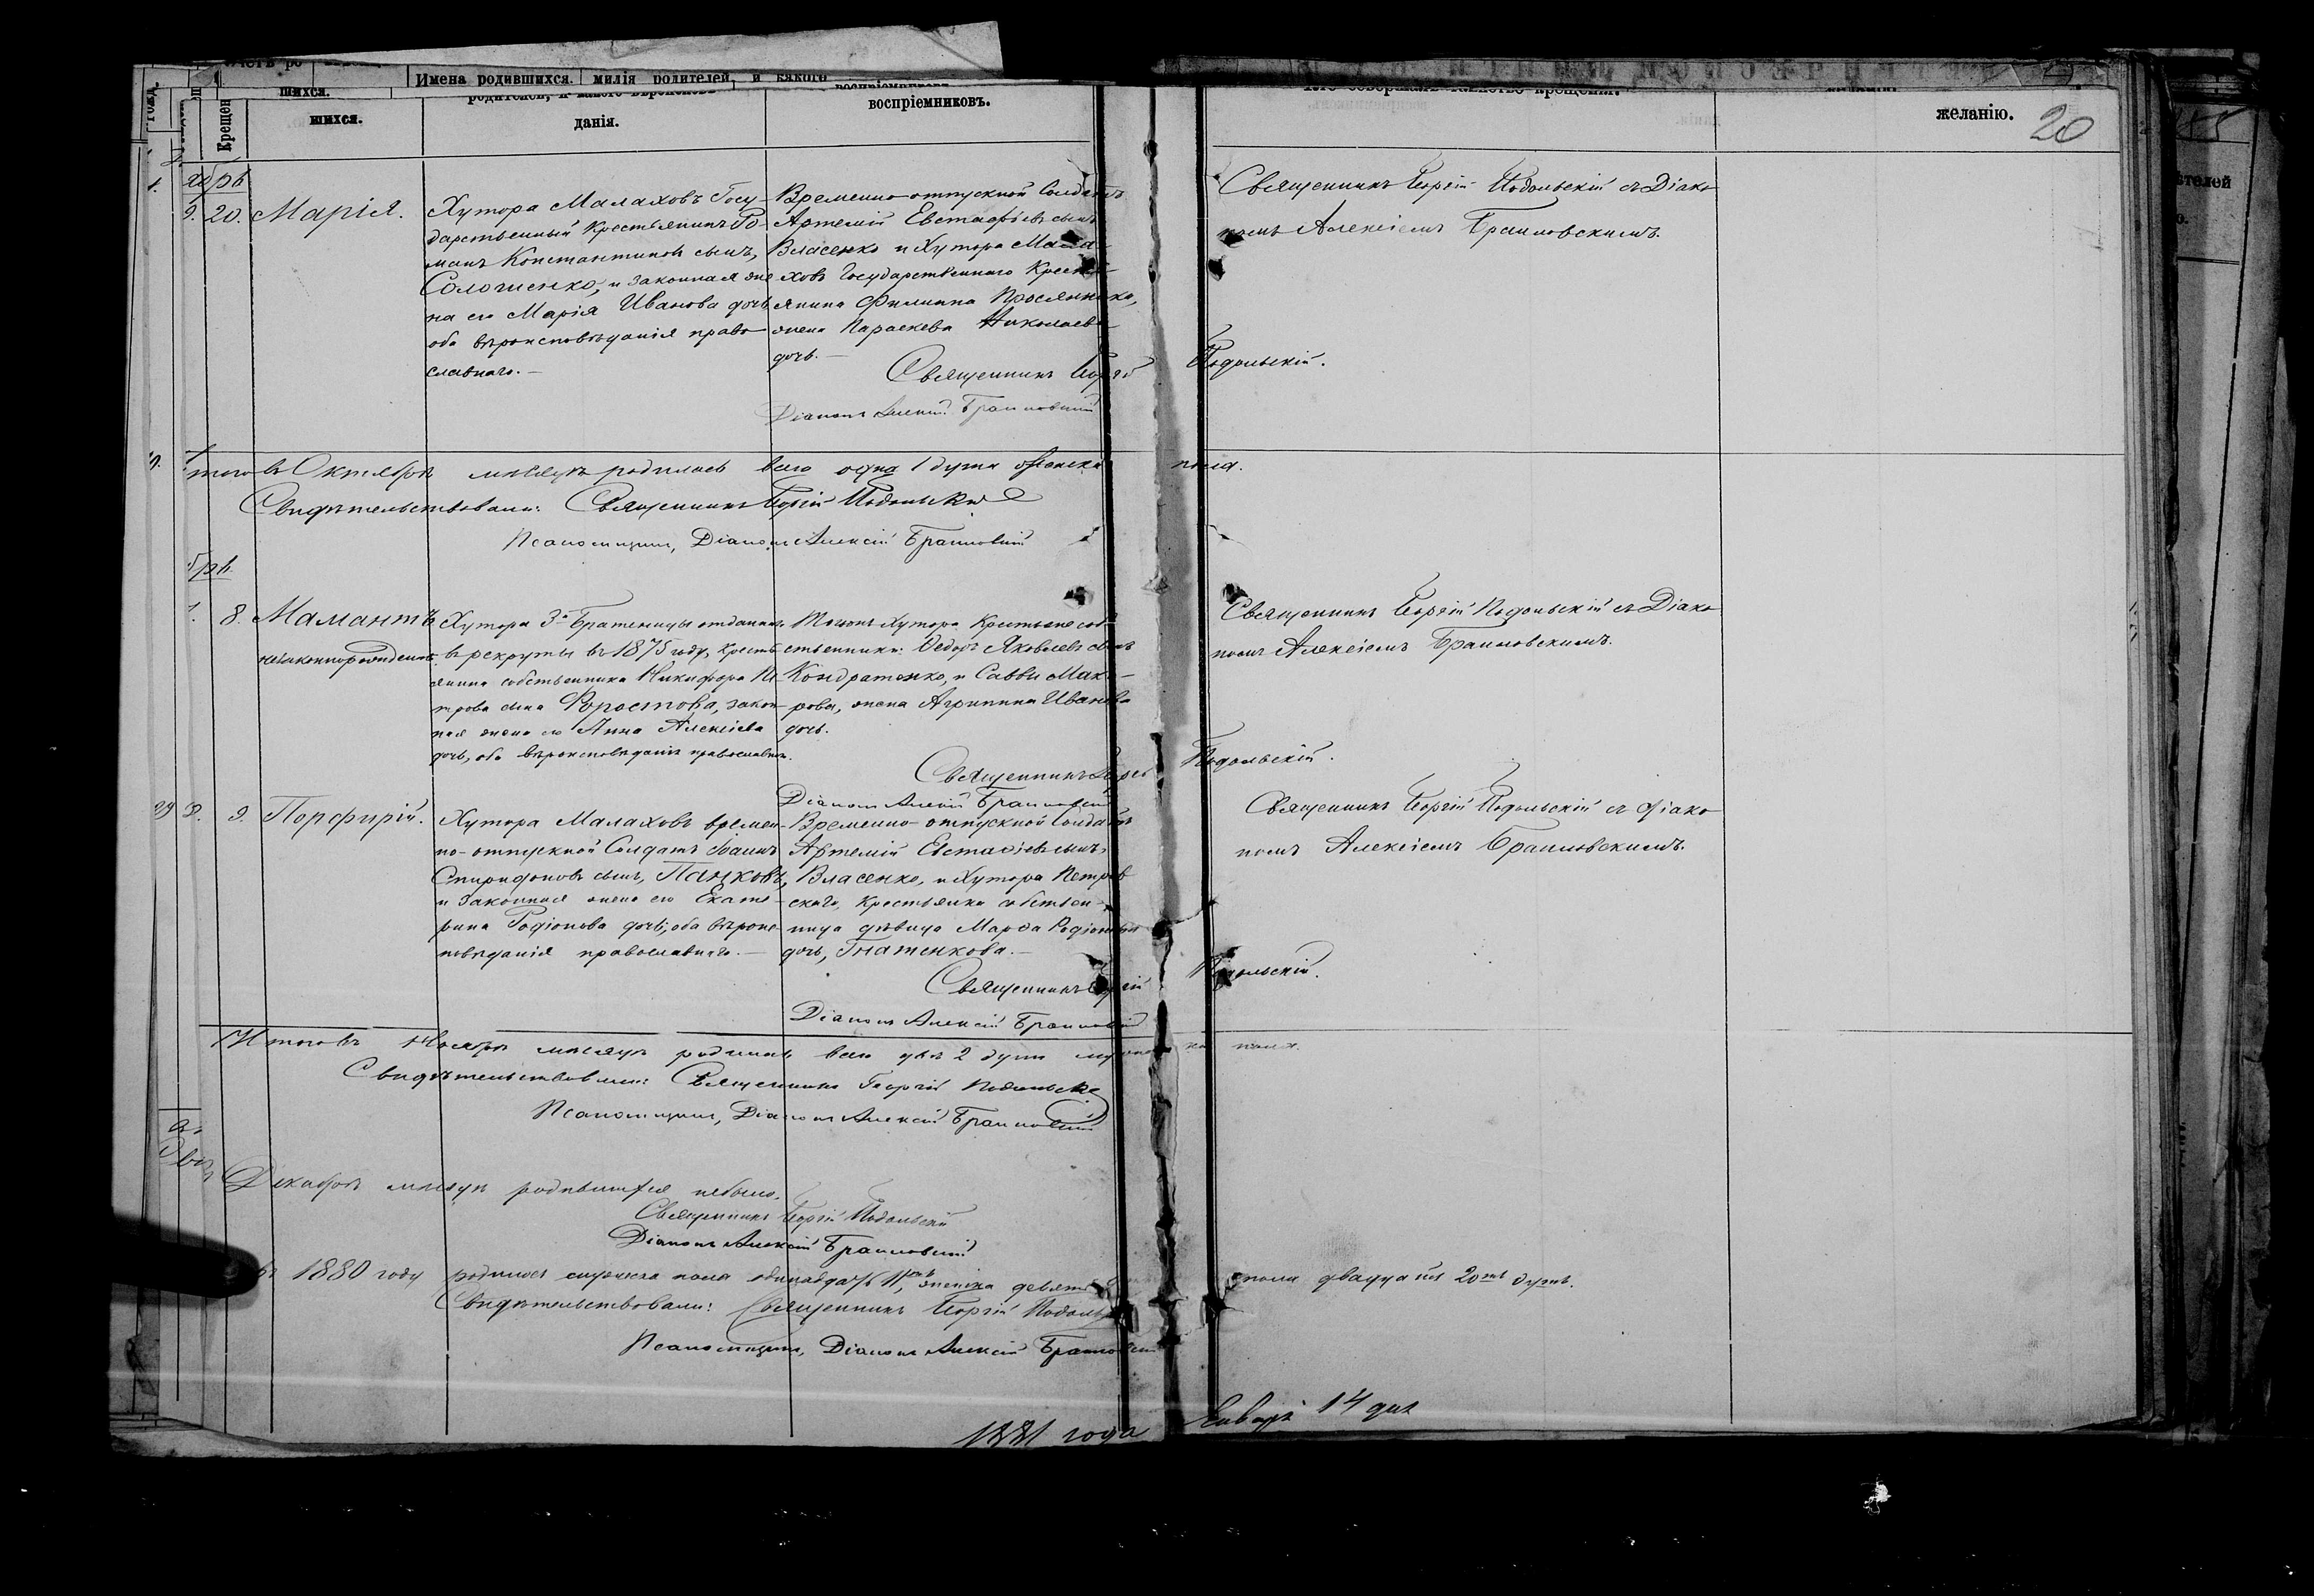 Имена родившихся. милія родителей, и какого
шихся.
Крещен
шихся.
данія.
воспріемниковъ.
желанію. 20
20. Марія.
Хутора Малаховъ Госу-
дарственный Крестьянинъ Ро-
манъ Константиновъ сынъ,
и законная же
на его Марія Иванова дочь
оба вѣроисповѣданія право
славнаго. —
Временно отпускной Солдатъ
Артемій Евстафіевъ сынъ
Власенко и Хутора Мала-
ховъ Государственнаго Кресть-
янина Филиппа
жена Параскева Николаева
дочь. —
Священникъ Георгій Подольскій.
Діаконъ Алексій Браиловскій
Священникъ Георгій Подольскій съ Діако
номъ Алексіемъ Браиловскимъ.
того въ Октябрѣ мѣсяцѣ родилась всего одна 1 душа женска пола.
Свидѣтельствовали: Священникъ Георгій Подольскій
Псаломщикъ, Діаконъ Алексій Браиловскій
8. Мамантъ
незаконнорожденный
Хутора 3й Братеницы отданнаго
въ рекруты въ 1875 году, кресть
янина собственника Никифора Пе
трова сына Форостова, закон-
ная жена его Анна Алексіева
дочь, оба вѣроисповѣданія православнаго.
Тогожъ Хутора Крестьяне соб
ственники: Ѳедоръ Яковлевъ сынъ
Кондратенко, и Саввы Мака-
рова, жена Агрипина Иванова
дочь.
Священникъ Георгій Подольскій.
Діаконъ Алексій Браиловскій
Священникъ Георгій Подольскій съ Діако
номъ Алексіемъ Браиловскимъ.
9. Порфирій.
Хутора Малаховъ времен-
но-отпускной Солдатъ Іоаннъ
Спиридоновъ сынъ, Панковъ,
и законная жена его Екате-
рина Родіонова дочь; оба вѣроис-
повѣданія православнаго. —
Временно-отпускной Солдатъ
Артемій Евстафіевъ сынъ,
Власенко, и Хутора Петров
скаго, крестьянка собствен-
ница дѣвица Марѳа Родіонова
дочь, Гнатенкова. —
Священникъ Георгій Подольскій.
Діаконъ Алексій Браиловскій
Священникъ Георгій Подольскій съ Діако
номъ Алексіемъ Браиловскимъ.
Итого въ Ноябрѣ мѣсяцѣ родилось всего двѣ 2 души мужска го пола.
Свидѣтельствовали: Священникъ Георгій Подольскій
Псаломщикъ, Діаконъ Алексій Браиловскій
Декабрѣ мѣсяцѣ родившихся небыло.
Священникъ Георгій Подольскій
Діаконъ Алексій Браиловскій
1880 году родилось мужеска пола одинадцать 11ть, женска девять пола двадцать 20ть душъ.
Свидѣтельствовали: Священникъ Георгій Подольскій
Псаломщикъ, Діаконъ Алексій Браиловскій
1881 года Января 14 дня